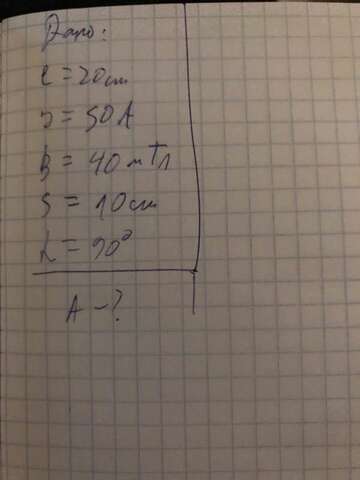 Дано:
l = 20 cm
J = 50 A
B = 40 мТл
S = 10 cm
α = 90°
A - ?